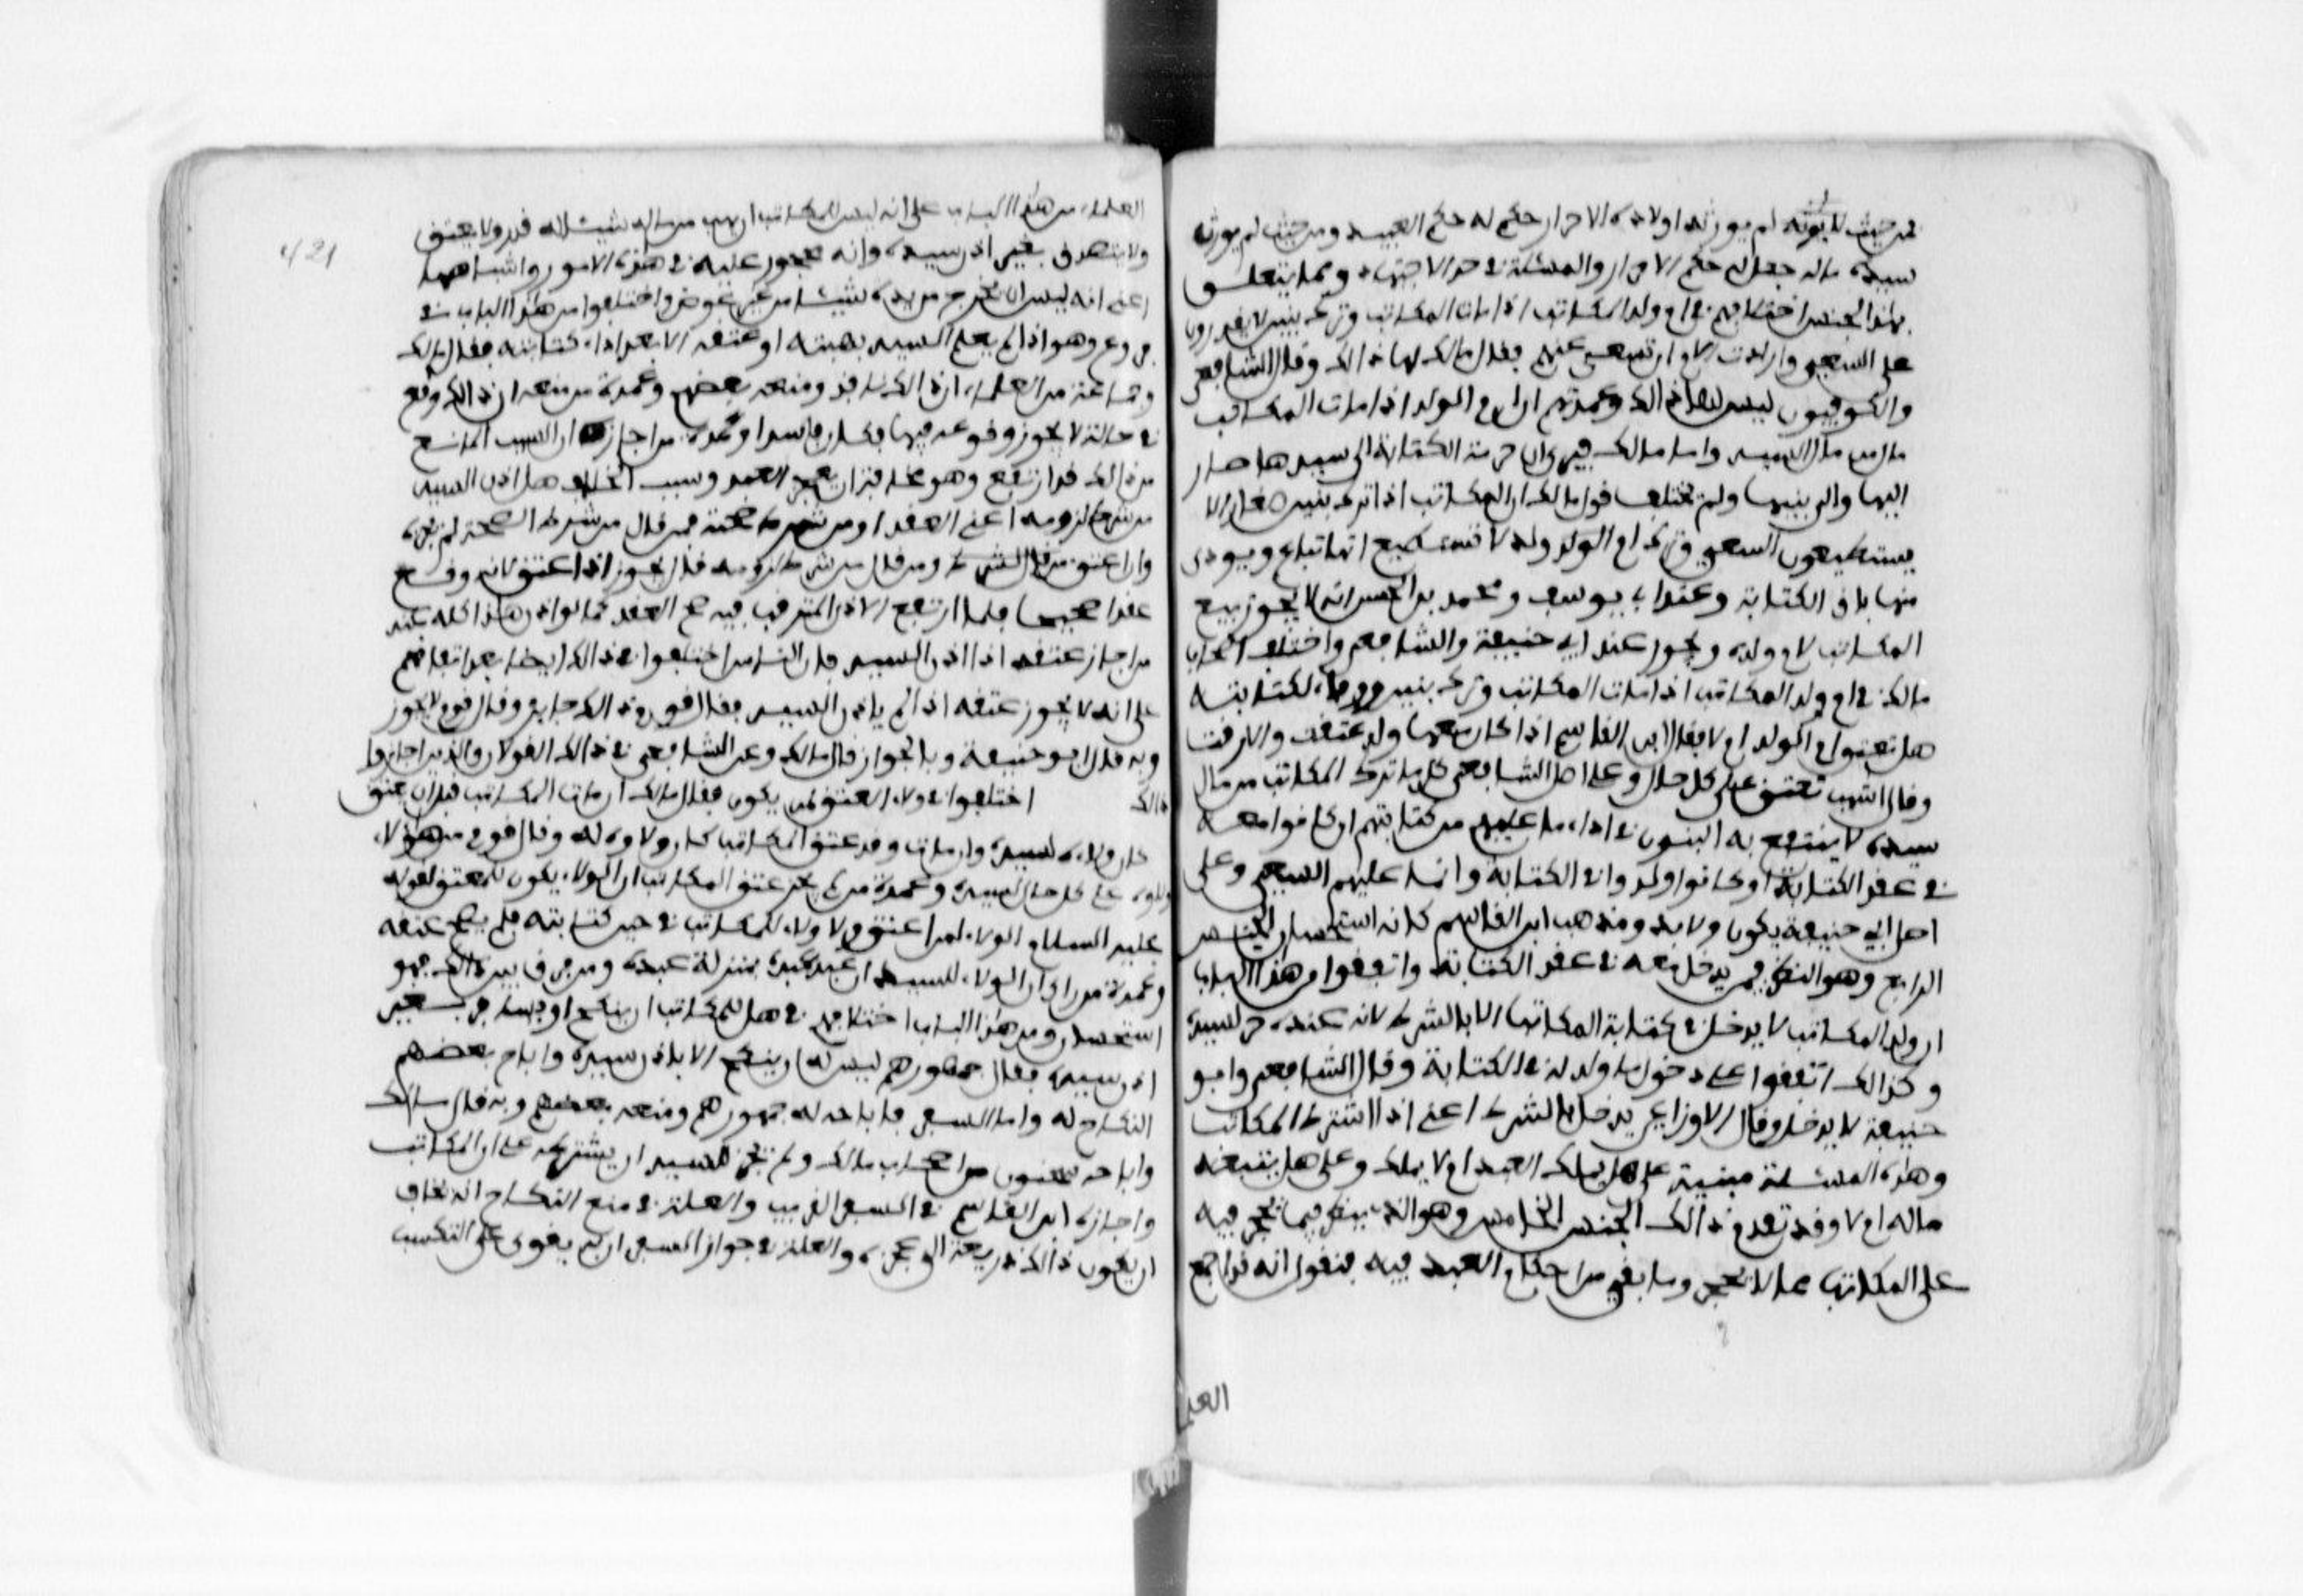 فمن حيث لا بوته لم يورثه اولاده الاحرار حكم له حكم العبيد ومن حيث لم يورث
سيده ماله جعل له حكم الاحرار والمسئلة في حد الاجتهاد ومما يتعلق
بهذا الجنس اختلافهم في ام ولد المكاتب اذا مات المكاتب وترك بنين لا يقدرون
على السعي وارادت الام ان تسعى عليهم فقال مالك لها ذالك وقال الشافعي
والكوفيون ليس لها ذالك وعمدتهم ان ام الولد اذا مات المكاتب
مال من مال السيد واما مالك فيرى ان حرمة الكتابة التي لسيدها صار
اليها والى بنيها ولم يختلف قول مالك ان المكاتب اذا ترك بنين صغارا لا
يستطيعون السعي وترك ام الولد ولد لا تستطيع انها تباع ويودى
منها باقي الكتابة وعند ابي يوسف ومحمد بن الحسن انه لا يجوز بيع
المكاتب لام ولده ويجوز عند ابي حنيفة والشافعي واختلف اصحاب
مالك في ام ولد المكاتب اذا مات المكاتب وترك بنين ووفاء لكتابته
هل تعتق ام الولد ام لا فقال ابن القاسم اذا كان معها ولد عتقت والا رقت
وقال اشهب تعتق على كل حال وعلى اصل الشافعي كل ما ترك المكاتب من مال
سيده لا ينتفع به البنون في اداء ما عليهم من كتابتهم ان كانوا معه
في عقد الكتابة او كانوا ولدوا في الكتابة وانما عليهم السعي وعلى
اصل ابي حنيفة يكون ولا بد ومذهب ابن القاسم كانه استحسان الجنس
الرابع وهو النظر فيمن يدخل معه في عقد الكتابة واتفقوا من هذا الباب
ان ولد المكاتب لا يدخل في كتابة المكاتب الا بالشرط لانه عنده حر لسيده
وكذالك اتفقوا على دخول ما ولد له في الكتابة وقال الشافعي وابو
حنيفة لا يدخل وقال الاوزاعي يدخل بالشرط اعني اذا اشترط المكاتب
وهذه المسئلة مبنية على هل يملك العبد ام لا يملك وعلى هل يتبعه
ماله ام لا وقد تقدم ذالك الجنس الخامس وهو الذي ينظر فيما يحجر فيه
على المكاتب مما لا يحجر وما بقي من احكام العبد فيه فنقول انه قد اجمع
العلماء من هذا الباب على انه ليس للمكاتب ان يهب من ماله شيئا له قدر ولا يعتق
ولا يتصدق بغير اذن سيده وانه محجور عليه في هذه الامور واشباهها
اعني انه ليس ان يخرج من يده شيئا من غير عوض واختلفوا من هذا الباب في
فروع وهو اذا لم يعلم السيد بهبته او عتقه الا بعد اداء كتابته فقال مالك
وجماعة من العلماء ان ذالك نافذ ومنعه بعضهم وعمدة من منعه ان ذالك وقع
في حالة لا يجوز وقوعه فيها فكان فاسدا وعمدة من اجازه ان السبب المانع
من ذالك قد ارتفع وهو مخافة ان يعجز العبد وسبب الخلاف هل اذن السيد
من شرط لزومه اعني العقد او من شرط صحته فمن قال من شرط الصحة لم يجزه
وان عتق من قبل الشرط ومن قال من شرط لزومه قال يجوز اذا عتق لانه وقع
عقدا صحيحا فلما ارتفع الاذن المترقب فيه صح العقد كما لو اذن هذا كله عند
من اجاز عتقه اذا اذن السيد فان الناس اختلفوا في ذالك ايضا بعد اتفاقهم
على انه لا يجوز عتقه اذا لم ياذن السيد فقال قوم ذالك جايز وقال قوم لا يجوز
وبه قال ابو حنيفة وبالجواز قال مالك وعن الشافعي في ذالك القولان والذين اجازوا
ذالك اختلفوا في ولاء العتق لمن يكون فقال مالك ان مات المكاتب قبل ان يعتق
كان ولاه لسيده وان مات وقد عتق المكاتب كان ولاوه له وقال قوم من هولاء
ولاوه على كل حال لسيده وعمدة من لم يجز عتق المكاتب ان الولاء يكون للمعتق لقوله
عليه السلام الولاء لمن اعتق ولا ولاء للمكاتب في حين كتابته فلم يصح عتقه
وعمدة من راى ان الولاء للسيد ان عبد عبده بمنزلة عبده ومن فرق بين ذالك فهو
استحسان ومن هذا الباب اختلافهم في هل للمكاتب ان ينكح او يسافر بغير
اذن سيده فقال جمهورهم ليس له ان ينكح الا باذن سيده واباح بعضهم
النكاح له واما السفر فاباحه له جمهورهم ومنعه بعضهم وبه قال مالك
واباحه سحنون من اصحاب مالك ولم يجز للسيد ان يشترطه على المكاتب
واجازه ابن القاسم في السفر القريب والعلة في منع النكاح انه يخاف
ان يكون ذالك ذريعة الى عجزه والعلة في جواز السفر ان به يقوى على التكسب
العلـ
421